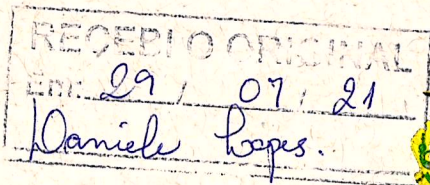 RECEBI O ORIGINAL
Em: 29 / 07 / 21
Daniele Lopes.